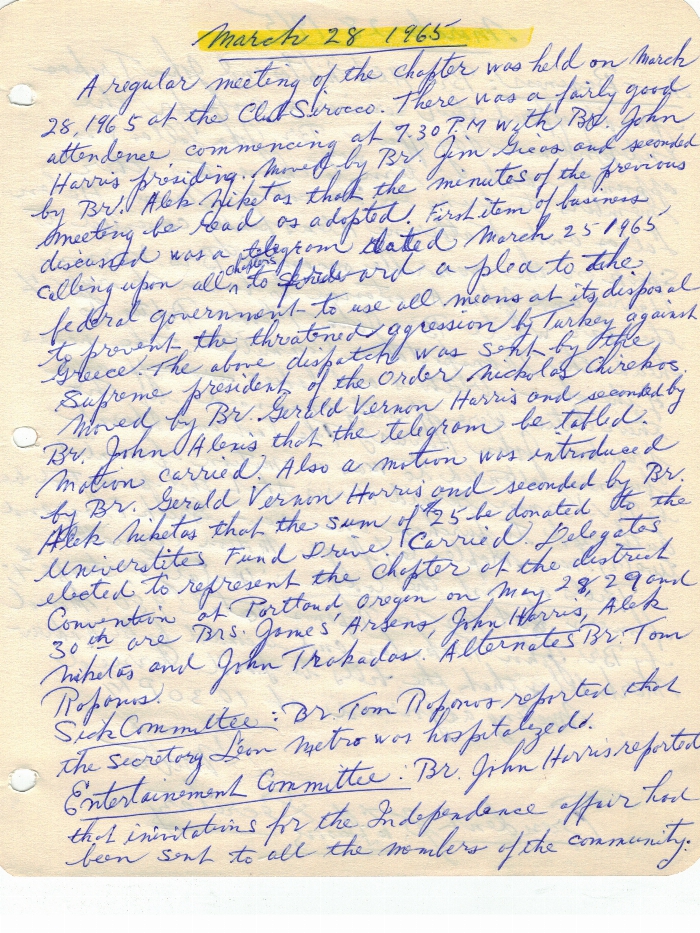 March 28 1965
A regular meeting of the chapter was held on March
28, 1965 at the Club Sirocco. There was a fairly good
attendence commencing at 7.30 P.M with Br. John
Harris presiding. Moved by Br. Jim Gicas and seconded
by Br. Alek Niketas that the minutes of the previous
meeting be read as adopted. First item of business
discussed was a telegram dated March 25 1965
calling upon all chapters to forde ward a plea to the
federal government to use all means at its disposal
to prevent the thratened agression by Turkey against
Greece. The above dispatch was sent by the
Supreme president of the Order Nickolas Chirekos.
Moved by Br. Gerald Vernon Harris and seconded by
Br. John Alexis that the telegram be tabled.
Motion carried. Also a motion was introduced
by Br. Gerald Vernon Harris and seconded by Br.
Alek Niketas that the sum of $25 be donated to the
Universities Fund Drive. Carried. Delegates
elected to represent the chapter at the district
Convention at Portland Oregon on May 28, 29 and
30th are Brs. James Arsens, John Harris, Alek
Niketas and John Trakadas. Alternates Br. Tom
Roponos.
Sick Committee: Br. Tom Roponos reported that
the Secretary Leon Metro was hospitalized.
Entertainement Committee: Br. John Harris reported
that inivitations for the Independance affair had
been sent to all the members of the community.